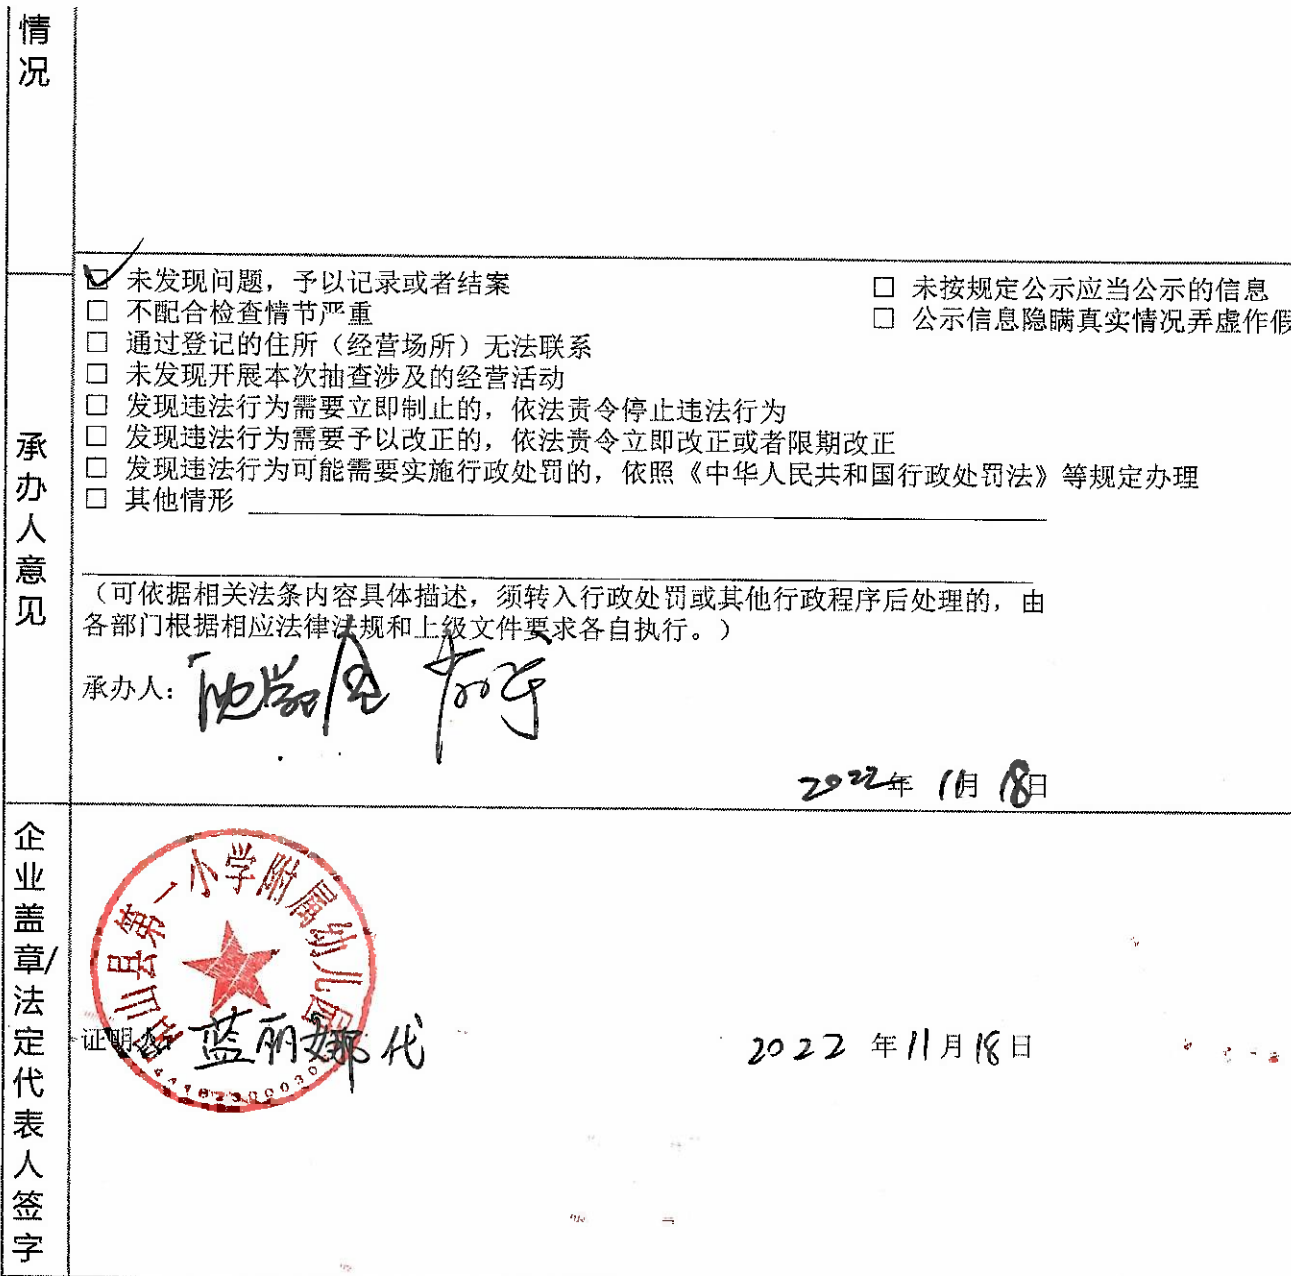 情况
未发现问题，予以记录或者结案
□ 不配合检查情节严重
□ 通过登记的住所（经营场所）无法联系
□ 未发现开展本次抽查涉及的经营活动
□ 发现违法行为需要立即制止的，依法责令停止违法行为
□ 发现违法行为需要予以改正的，依法责令立即改正或者限期改正
□ 发现违法行为可能需要实施行政处罚的，依照《中华人民共和国行政处罚法》等规定办理
□ 其他情形
□ 未按规定公示应当公示的信息
□ 公示信息隐瞒真实情况弄虚作假
承办人意见
（可依据相关法条内容具体描述，须转入行政处罚或其他行政程序后处理的，由
各部门根据相应法律法规和上级文件要求各自执行。）
承办人：
2022年 11月 18日
企业盖章/法定代表人签字
县第一小学附属幼儿园
证明人：蓝丽娜代
2022 年 11 月 18 日